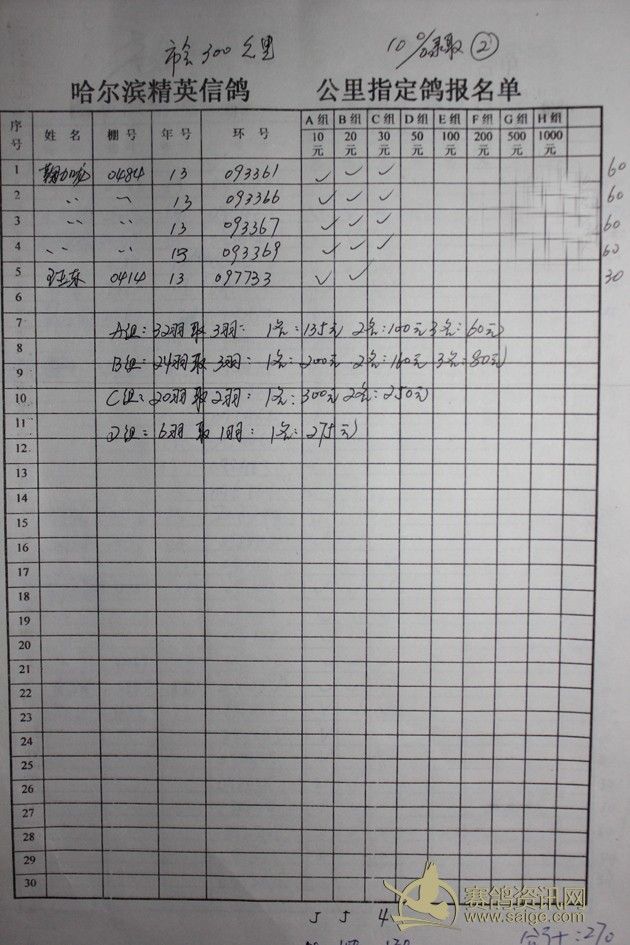 市会300公里 10%录取②
哈尔滨精英信鸽 公里指定鸽报名单
序号 姓名 棚号 年号 环号 A组10元 B组20元 C组30元 D组50元 E组100元 F组200元 G组500元 H组1000元
1 0484 13 093361 ✓ ✓ ✓ 60
2 〃 〃 13 093366 ✓ ✓ ✓ 60
3 〃 〃 13 093367 ✓ ✓ ✓ 60
4 〃 〃 13 093369 ✓ ✓ ✓ 60
5 王亚东 0414 13 097733 ✓ ✓ 30
6
7 A组:32羽取3羽: 1名:135元 2名:100元 3名:60元
8
9 B组:24羽取3羽: 1名:200元 2名:160元 3名:80元
10 C组:20羽取2羽: 1名:300元 2名:250元
11 D组:6羽取1羽: 1名:275元
12
13
14
15
16
17
18
19
20
21
22
23
24
25
26
27
28
29
30
赛鸽资讯网
www.saige.com
5 5 4
合计:270